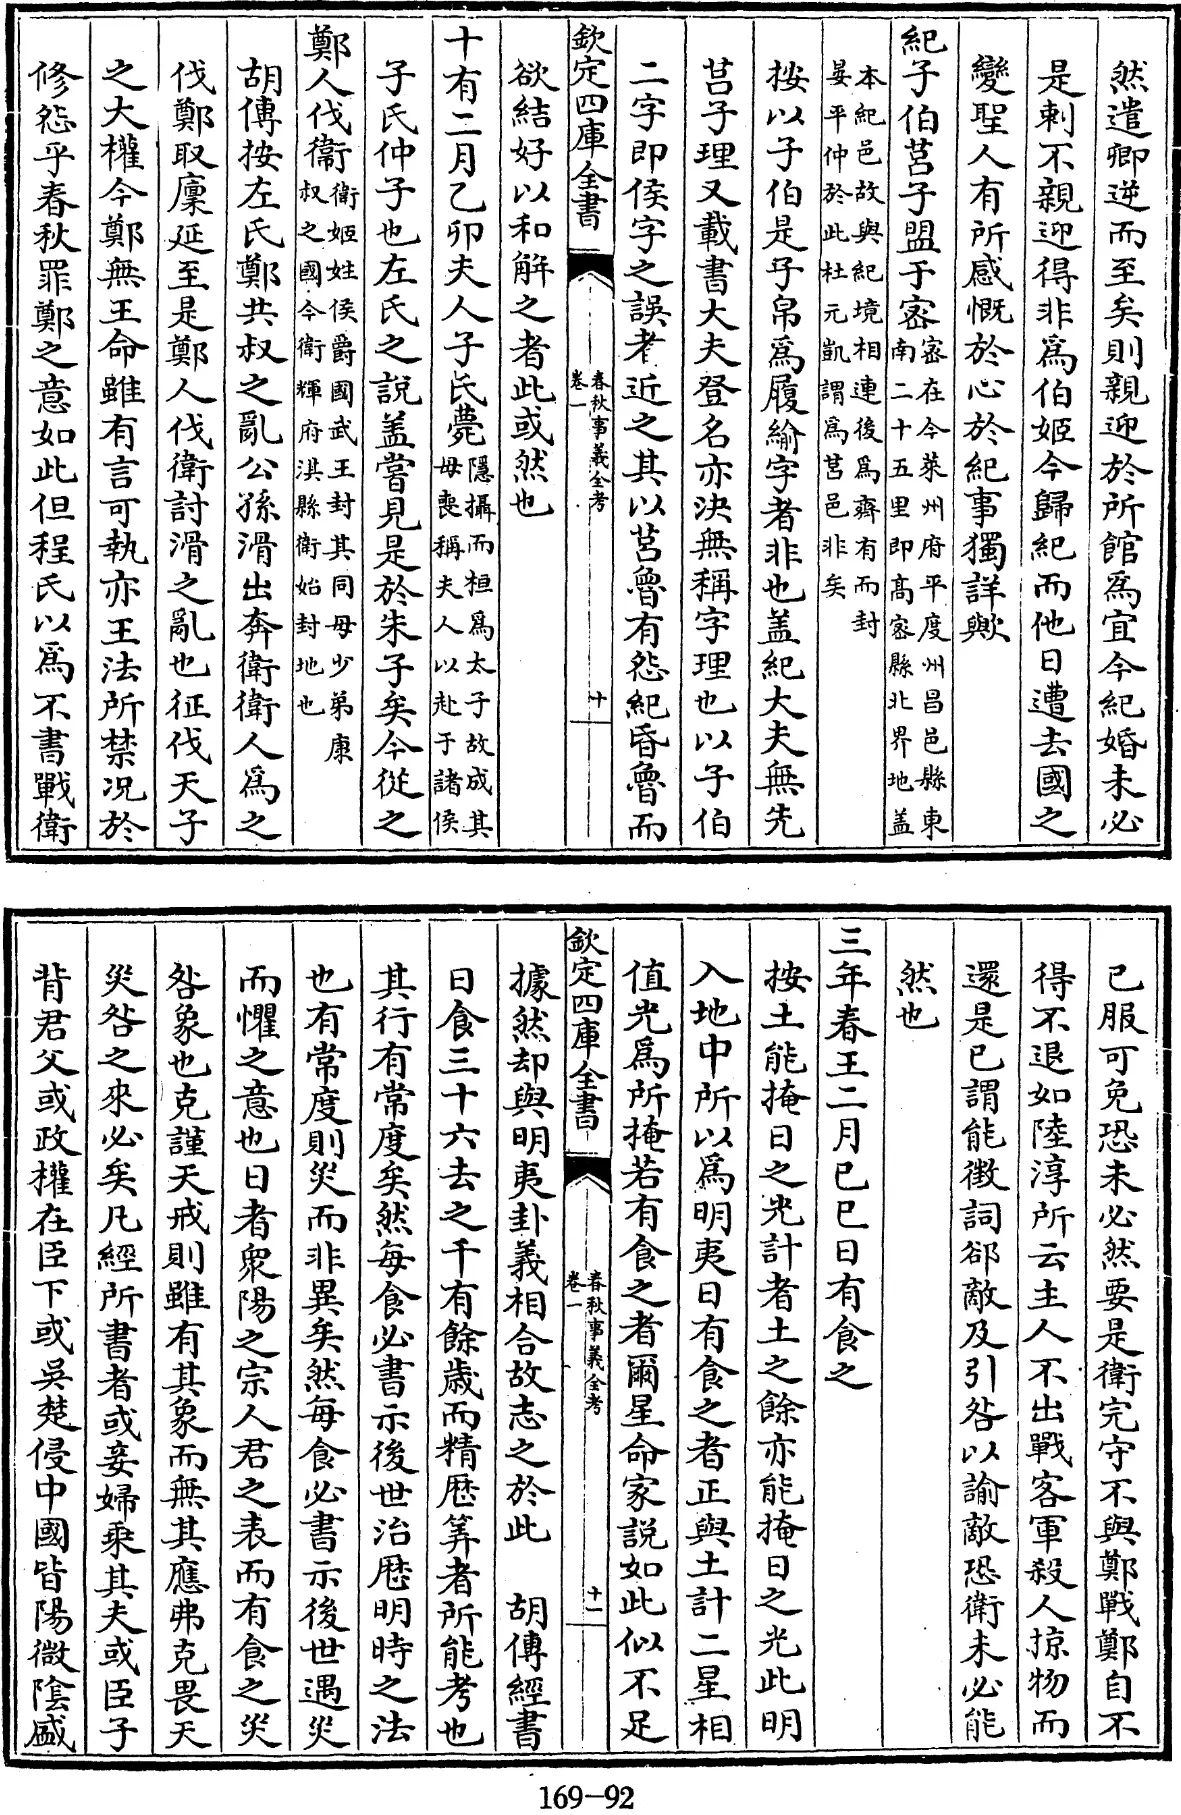 然遣卿逆而至矣則親迎於所館爲宜今紀婚未必
是刺不親迎得非爲伯姬今歸紀而他日遭去國之
變聖人有所感慨於心於紀事獨詳歟
紀子伯莒子盟于密密在今萊州府平度州昌邑縣東南二十五里即髙密縣北界地盖
本紀邑故與紀境相連後爲齊有而封晏平仲於此杜元凱謂爲莒邑非矣
按以子伯是子帛爲履緰字者非也盖紀大夫無先
莒子理又載書大夫登名亦決無稱字理也以子伯
二字即侯字之誤者近之其以莒魯有怨紀昏魯而
欽定四庫全書
春秋事義全考
卷一
十
欲結好以和解之者此或然也
十有二月乙卯夫人子氏薨隱攝而桓爲太子故成其母喪稱夫人以赴于諸侯
子氏仲子也左氏之說盖嘗見是於朱子矣今從之
鄭人伐衞衞姬姓侯爵國武王封其同母少弟康叔之國今衞輝府淇縣衞始封地也
胡傳按左氏鄭共叔之亂公孫滑出奔衛衛人爲之
伐鄭取廩延至是鄭人伐衛討滑之亂也征伐天子
之大權今鄭無王命雖有言可執亦王法所禁况於
修怨乎春秋罪鄭之意如此但程氏以爲不書戰衛
已服可免恐未必然要是衛完守不與鄭戰鄭自不
得不退如陸淳所云主人不出戰客軍殺人掠物而
還是已謂能徴詞郤敵及引咎以諭敵恐衛未必能
然也
三年春王二月己巳日有食之
按土能掩日之光計者土之餘亦能掩日之光此明
入地中所以爲明夷日有食之者正與土計二星相
值光爲所掩若有食之者爾星命家説如此似不足
欽定四庫全書
春秋事義全考
卷一
十一
據然却與明夷卦義相合故志之於此 胡傳經書
日食三十六去之千有餘歲而精厯筭者所能考也
其行有常度矣然每食必書示後世治厯明時之法
也有常度則災而非異矣然每食必書示後世遇災
而懼之意也日者衆陽之宗人君之表而有食之災
咎象也克謹天戒則雖有其象而無其應弗克畏天
災咎之來必矣凡經所書者或妾婦乘其夫或臣子
背君父或政權在臣下或吳楚侵中國皆陽微陰盛
169-92